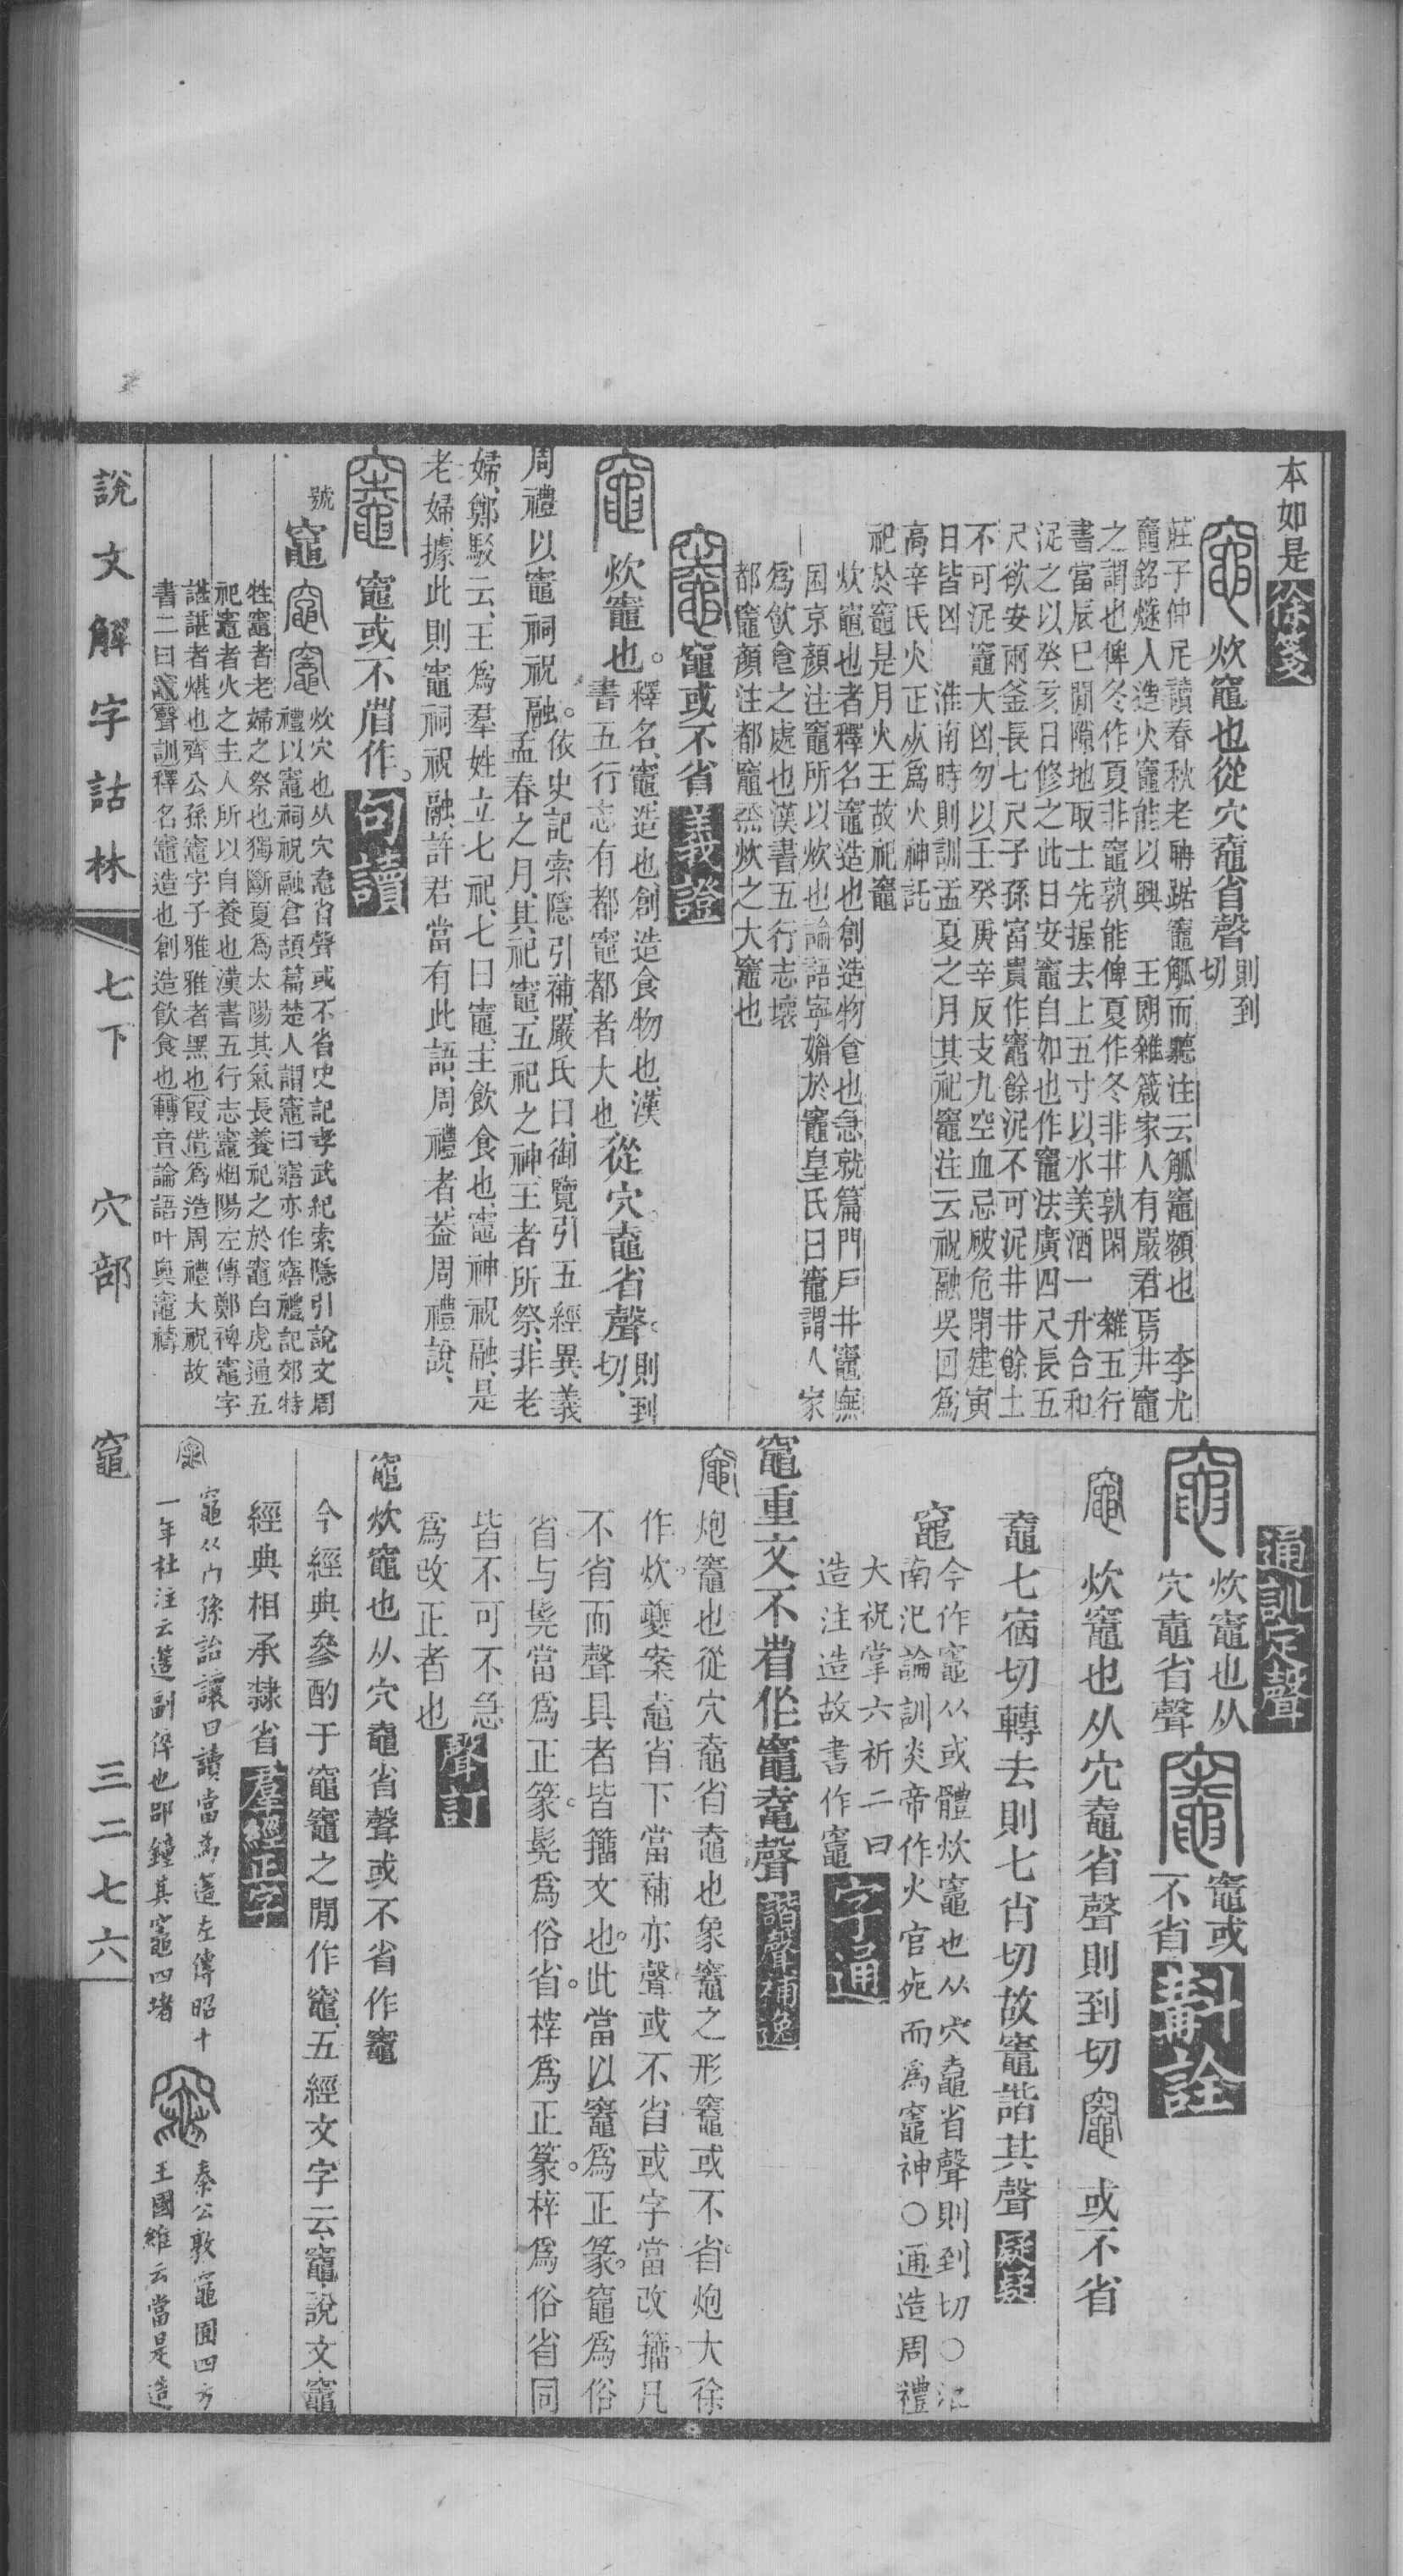 本如是徐箋
炊竈也從穴𪓰省聲則到切
莊子仲尼讀春秋老聃踞竈觚而聽注云觚竈額也　李尤
竈銘燧人造火竈能以興　王朗雜箴家人有嚴君焉井竈
之謂也俾冬作夏非竈孰能俾夏作冬非井孰閑　雜五行
書當辰巳閒隙地取土先握去上五寸以水美酒一升合和
泥之以癸亥日修之此日安竈自如也作竈法廣四尺長五
尺欲安兩釜長七尺子孫富貴作竈餘泥不可泥井井餘土
不可泥竈大凶勿以壬癸庚辛反支九空血忌破危閉建寅
日皆凶　淮南時則訓孟夏之月其祀竈注云祝融吳回爲
高辛氏火正死爲火神託
祀於竈是月火王故祀竈
炊竈也者釋名竈造也創造物食也急就篇門戶井竈廡
囷京顏注竈所以炊也論語寧媚於竈皇氏曰竈謂人家
爲飲食之處也漢書五行志壞
都竈顏注都竈烝炊之大竈也
竈或不省義證
炊竈也。釋名、竈造也創造食物也、漢書五行志有都竈都者大也從穴。𪓰省聲。則到切、
周禮以竈祠祝融。依史記索隱引補、嚴氏曰、御覽引五經異義
孟春之月、其祀竈、五祀之神、王者所祭、非老
婦、鄭駁云、王爲羣姓立七祀、七曰竈、主飲食也、竈神祝融、是
老婦、據此則竈祠祝融、許君當有此語、周禮者、葢周禮說、
竈或不省作。句讀
號竈炊穴也从穴𪓰省聲或不省史記孝武紀索隱引說文周
禮以竈祠祝融倉頡篇楚人謂竈曰寤亦作寤禮記郊特
牲竈者老婦之祭也獨斷夏爲太陽其氣長養祀之於竈白虎通五
祀竈者火之主人所以自養也漢書五行志竈烟陽左傳鄭裨竈字
諶諶者煁也齊公孫竈字子雅雅者黑也假借爲造周禮大祝故
書二曰竈聲訓釋名竈造也創造飲食也轉音論語叶奧竈禱
通訓定聲
炊竈也从穴𪓰省聲
竈或不省斠詮
炊竈也从穴𪓰省聲則到切　或不省
𪓰七宿切轉去則七肖切故竈諧其聲疑疑
竈今作竈从或體炊竈也从穴𪓰省聲則到切○氾
南汜論訓炎帝作火官死而爲竈神○通造周禮
大祝掌六祈二曰
造注造故書作竈字通
竈重文不省作竈𪓰聲諧聲補逸
炮竈也從穴𪓰省𪓰也象竈之形竈或不省。炮大徐
作炊。夔案𪓰省下當補亦聲或不省或字當改籀凡
不省而聲具者皆籀文也。此當以竈爲正篆。竈爲俗
省。与髡當爲正篆。髡爲俗省。榟爲正篆。梓爲俗省同
皆不可不急
爲改正者也聲訂
竈炊竈也从穴𪓰省聲或不省作竈
今經典參酌于竈竈之閒作竈、五經文字云、竈說文竈
經典相承隸省羣經正字
竈从穴孫詒讓曰讀當爲簉左傳昭十
一年杜注云簉副倅也卽鐘其竈四堵
秦公敦竈囿四方
王國維云當是造
說文解字詁林
七下　穴部　竈　三二七六